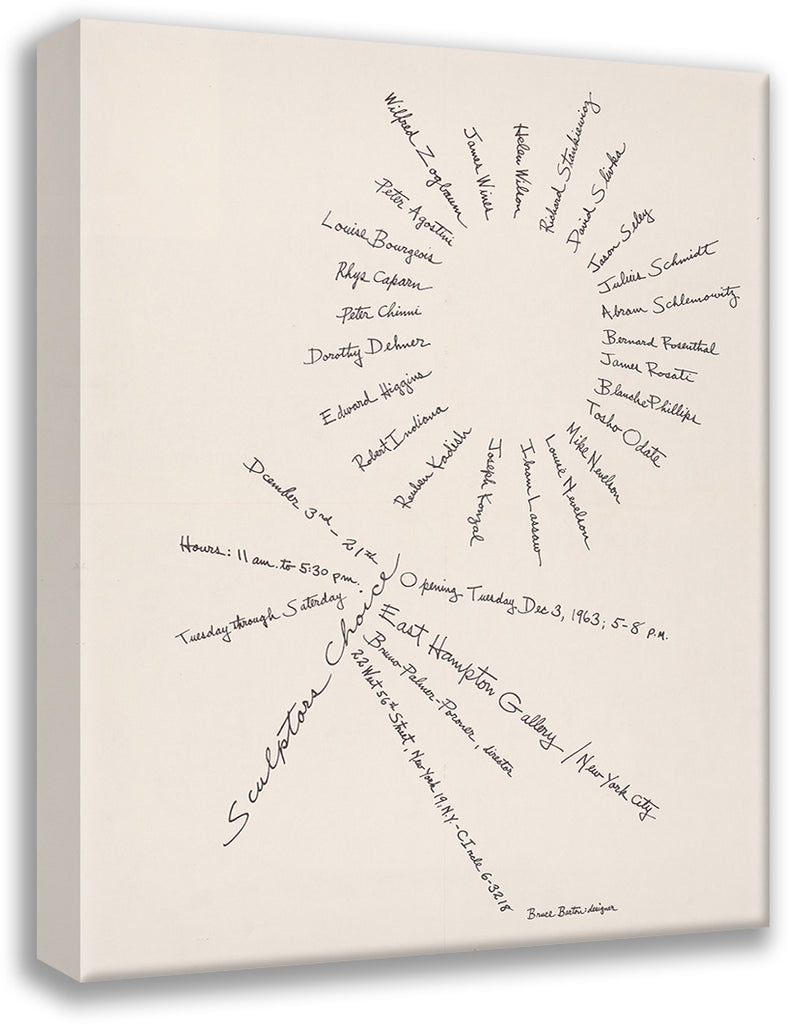 Wilfred Zogbaum
James Wines
Helen Wilson
Richard Stankiewicz
David Slivka
Jason Seley
Julius Schmidt
Abram Schlemowitz
Bernard Rosenthal
James Rosati
Blanche Phillips
Tosho Odate
Mike Nevelson
Louise Nevelson
Ibram Lassaw
Joseph Konzal
Reuben Kadish
Robert Indiana
Edward Higgins
Dorothy Dehner
Peter Chinni
Rhys Caparn
Louise Bourgeois
Peter Agostini
Sculptors Choice
Dcember 3rd - 21th
Hours: 11 am. to 5:30 pm.
Tuesday through Saterday
Opening Tuesday Dec 3, 1963; 5-8 P.M.
East Hampton Gallery / New York City
Bruno-Palmer-Poroner, director
22 West 56th Street, New York 19, N.Y. - CIrcle 6-3218
Bruce Barton: designer